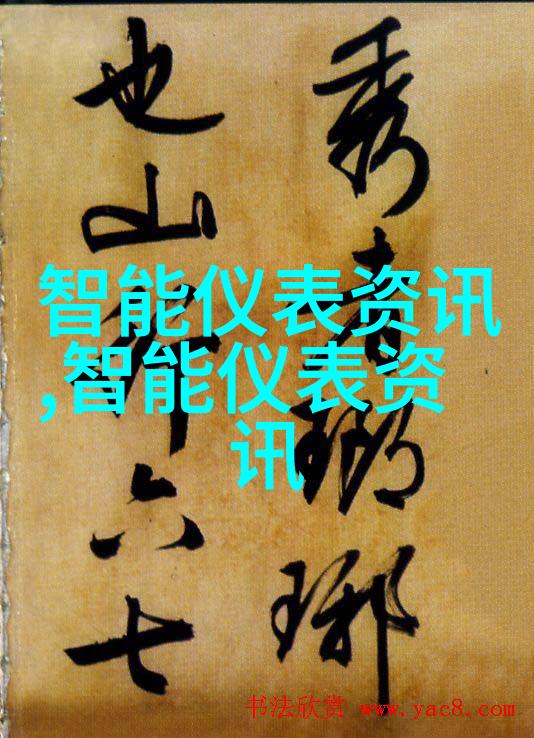 秀者瑯琊
也山行六七
智能仪表资讯
,智能仪表资
讯
书法欣赏 www.yac8.com